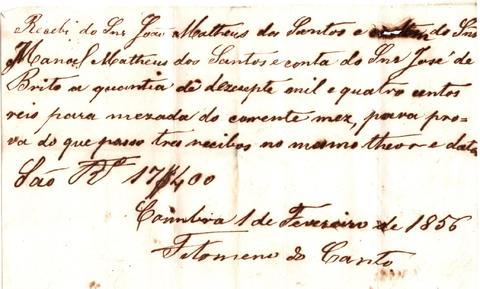 Recebi do Snr João Matheus dos Santos e do Snr
Manoel Matheus dos Santos e conta do Snr José de
Brito a quantia de dezesepte mil e quatro centos
reis para mezada do corrente mez, para pro-
va do que passo tres recibos no mesmo theor e data
São Rs 17$400
Coimbra 1 de Fevereiro de 1856
Filomeno do Canto